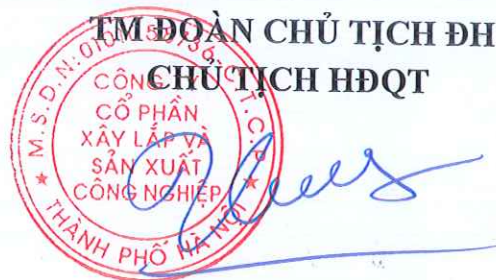 TM ĐOÀN CHỦ TỊCH ĐH
CHỦ TỊCH HĐQT
CÔNG TY
CỔ PHẦN
XÂY LẮP VÀ
SẢN XUẤT
CÔNG NGHIỆP
M.S.D.N: C.T.C.P
THÀNH PHỐ HÀ NỘI